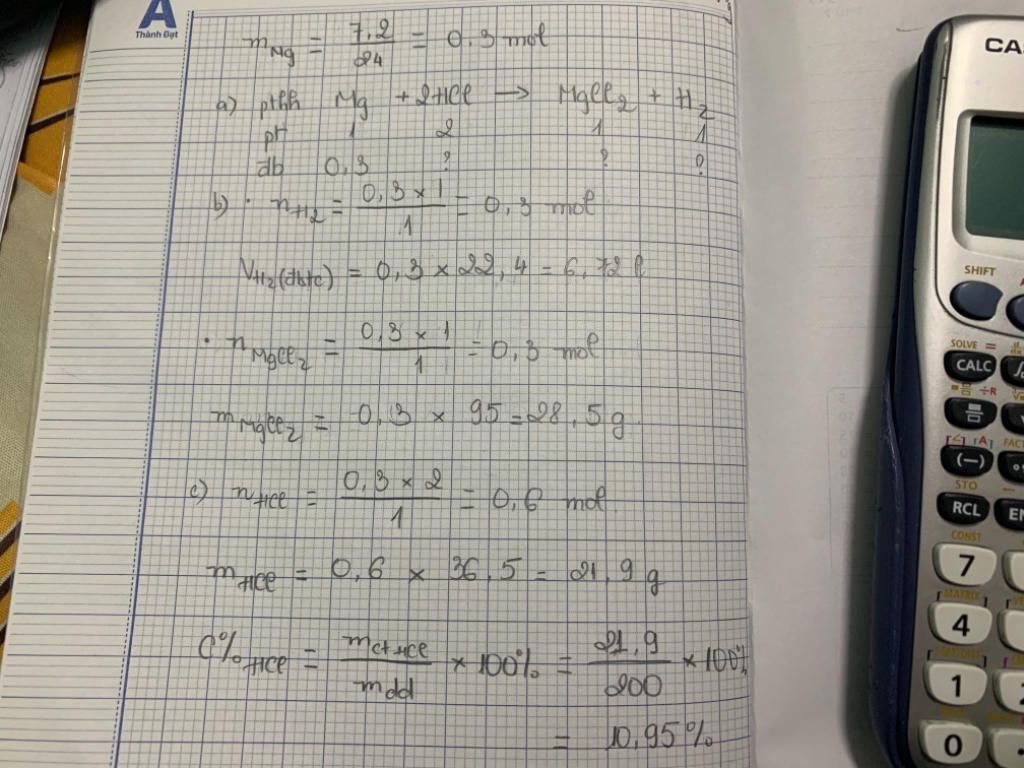 A
Thành Đạt
m Mg = 7,2 / 24 = 0,3 mol
a) pthh Mg + 2HCl → MgCl2 + H2
pt 1 2 1 1
đb 0,3 ? ? ?
b) • nH2 = 0,3 × 1 / 1 = 0,3 mol
VH2(đktc) = 0,3 × 22,4 = 6,72 l
• n MgCl2 = 0,3 × 1 / 1 = 0,3 mol
m MgCl2 = 0,3 × 95 = 28,5 g
c) nHCl = 0,3 × 2 / 1 = 0,6 mol
mHCl = 0,6 × 36,5 = 21,9 g
C% HCl = mct HCl / mdd × 100% = 21,9 / 200 × 100%
= 10,95%
CA
SHIFT
SOLVE =
CALC
(−)
STO
RCL
CONST
7
MATRIX
4
1
0